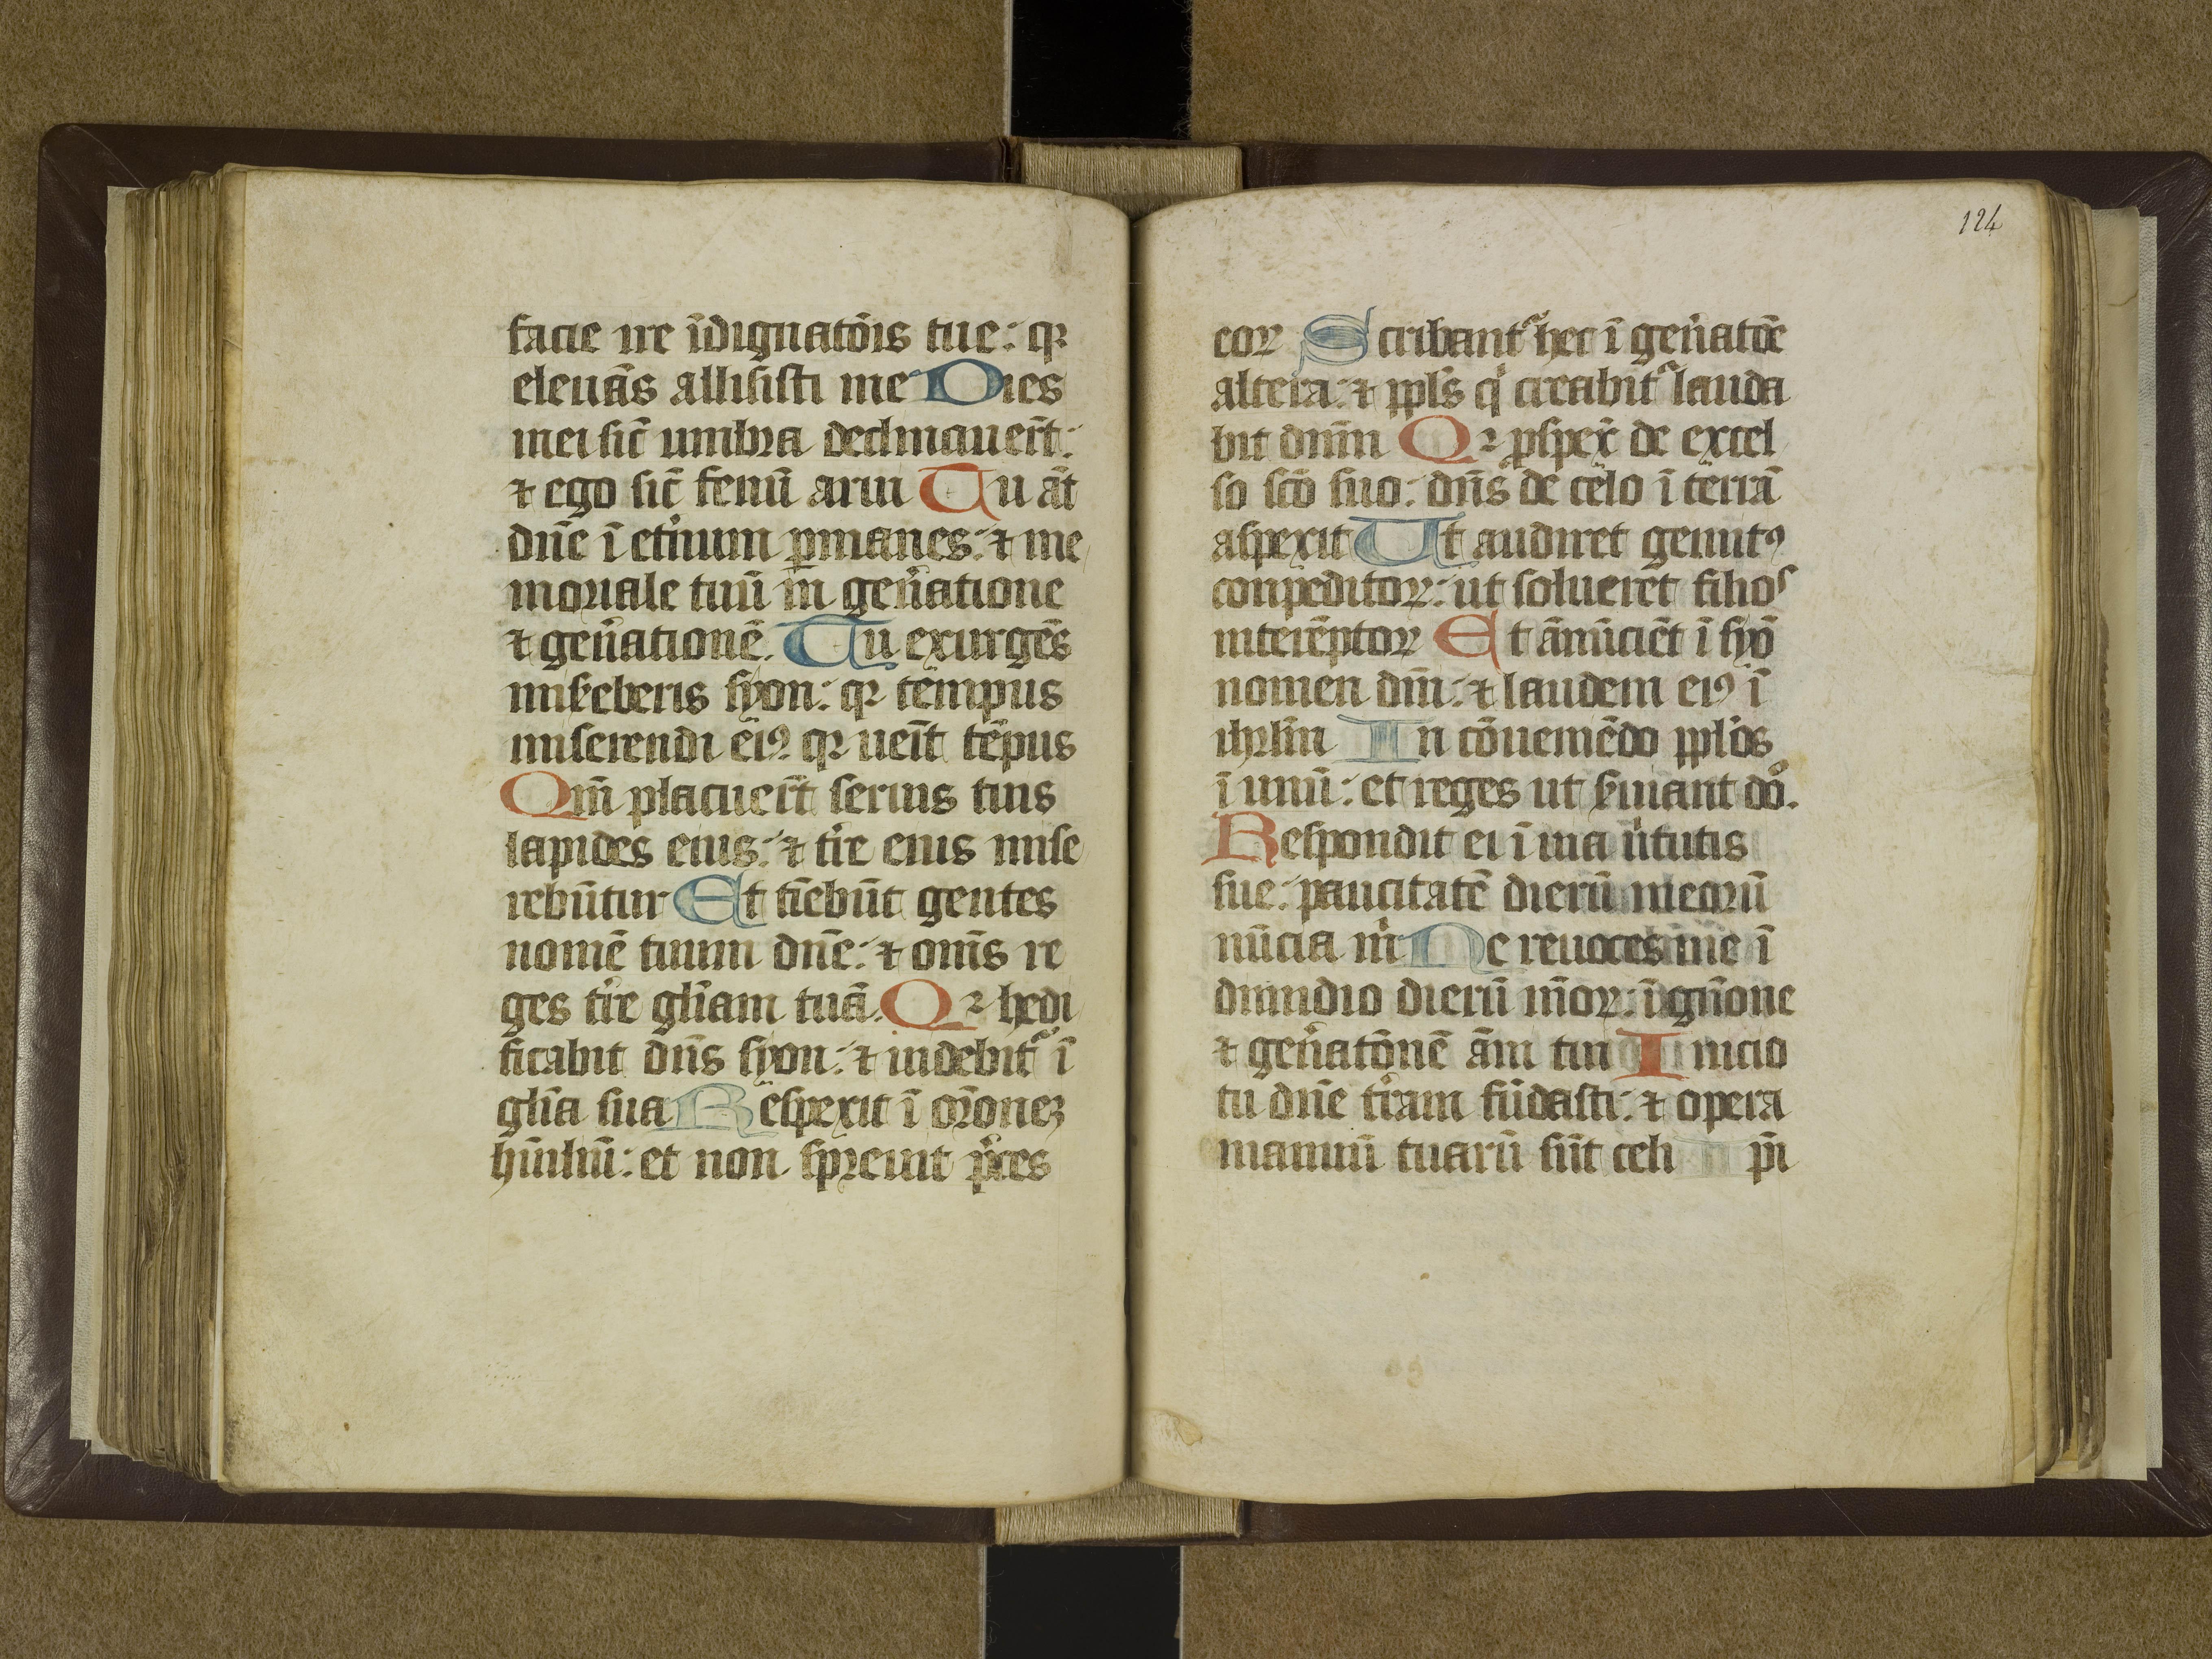 facie ire īdignatōis tue: qꝛ
eleuās allisisti me Dies
mei sic̄ umbra declinauer̄t:
⁊ ego sic̄ fenū arui Tu āt
dn̄e ī et̓num ꝑmanes: ⁊ me
moriale tuū in gen̓atione
⁊ gen̓ationē. Tu exurgēs
miẜeberis syon: qꝛ tempus
miserendi eiꝰ qꝛ uenīt tēpus
Qm̄ placuer̄t seruis tuis
lapides eius: ⁊ tr̓e eius mise
rebūtur Et tīebūt gentes
nomē tuum dn̄e: ⁊ om̄s re
ges tr̓e gl̄iam tuā. Qꝛ hedi
ficabit dn̄s syon: ⁊ uidebit᷑ ī
gl̄ia sua Respexit ī or̄oneꝫ
hūiliū: et non spreuit p̄ces
124
eoꝝ Scribant᷑ hec ī gen̓atōe
altera: ⁊ ppl̄s qͥ creabit᷑ lauda
bit dnm̄ Qꝛ ꝓspex̄ de excel
so sc̄o suo: dn̄s de celo ī terrā
aspexit Ut audiret gemitꝰ
conpeditoꝝ: ut solueret filios
interēptoꝝ Et ānūciēt ī syō
nomen dn̄i: ⁊ laudem eiꝰ ī
ihrlm̄ In cōueniēdo ppl̄os
ī unū: et reges ut ẜuiant dō.
Respondit ei ī uia u̓tutis
sue: paucitatē dierū meorū
nūcia m̓ Ne reuoces me ī
dimidio dierū m̄oꝝ: ī gn̄one
⁊ gen̓atōnē āni tui Inicio
tu dn̄e tr̓am fūdasti: ⁊ opera
manuū tuarū sūt celi p̄i